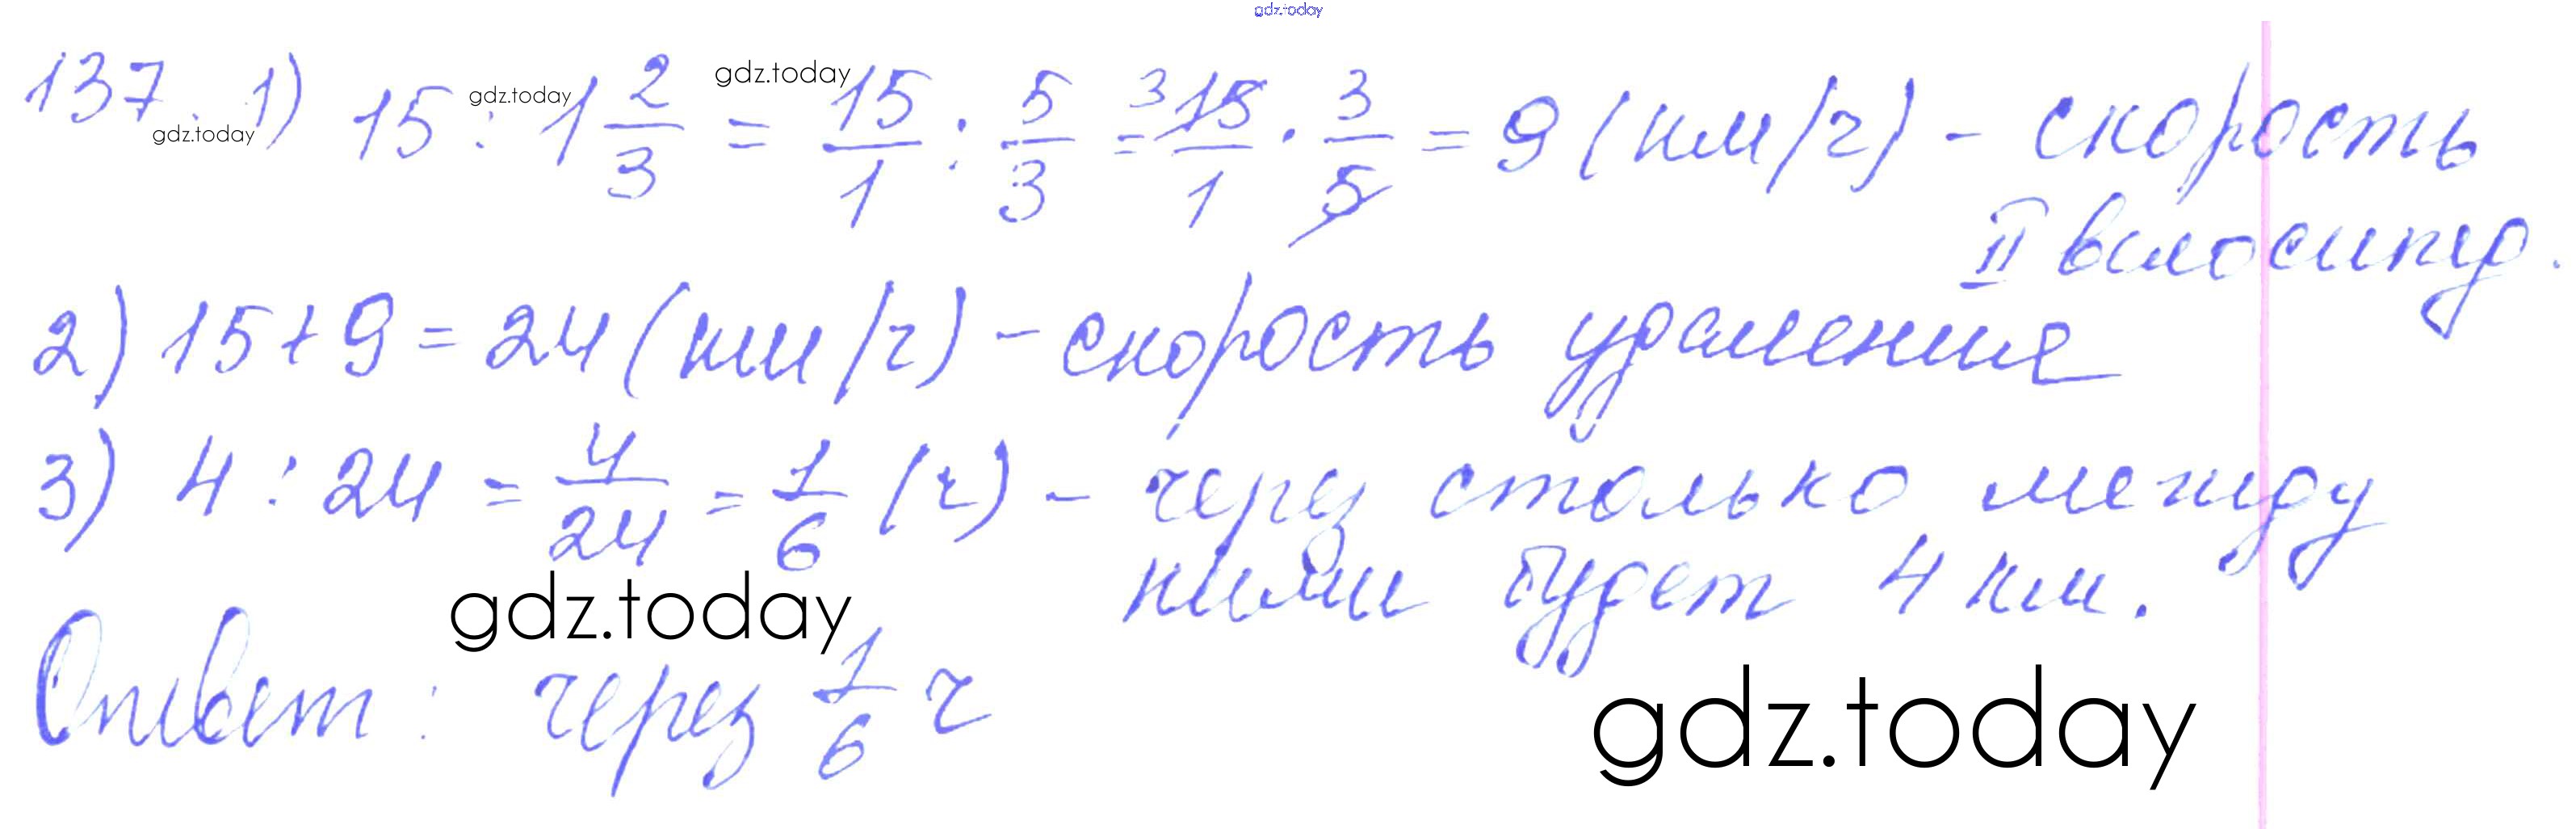 gdz.today
137. 1) 15 : 1 2/3 = 15/1 : 5/3 = 3 15/1 · 3/5 = 9 (км/ч) - скорость
gdz.today gdz.today gdz.today
II велосипед.
2) 15 + 9 = 24 (км/ч) - скорость удаления
3) 4 : 24 = 4/24 = 1/6 (ч) - через столько между
ними будет 4 км.
gdz.today
Ответ: через 1/6 ч
gdz.today